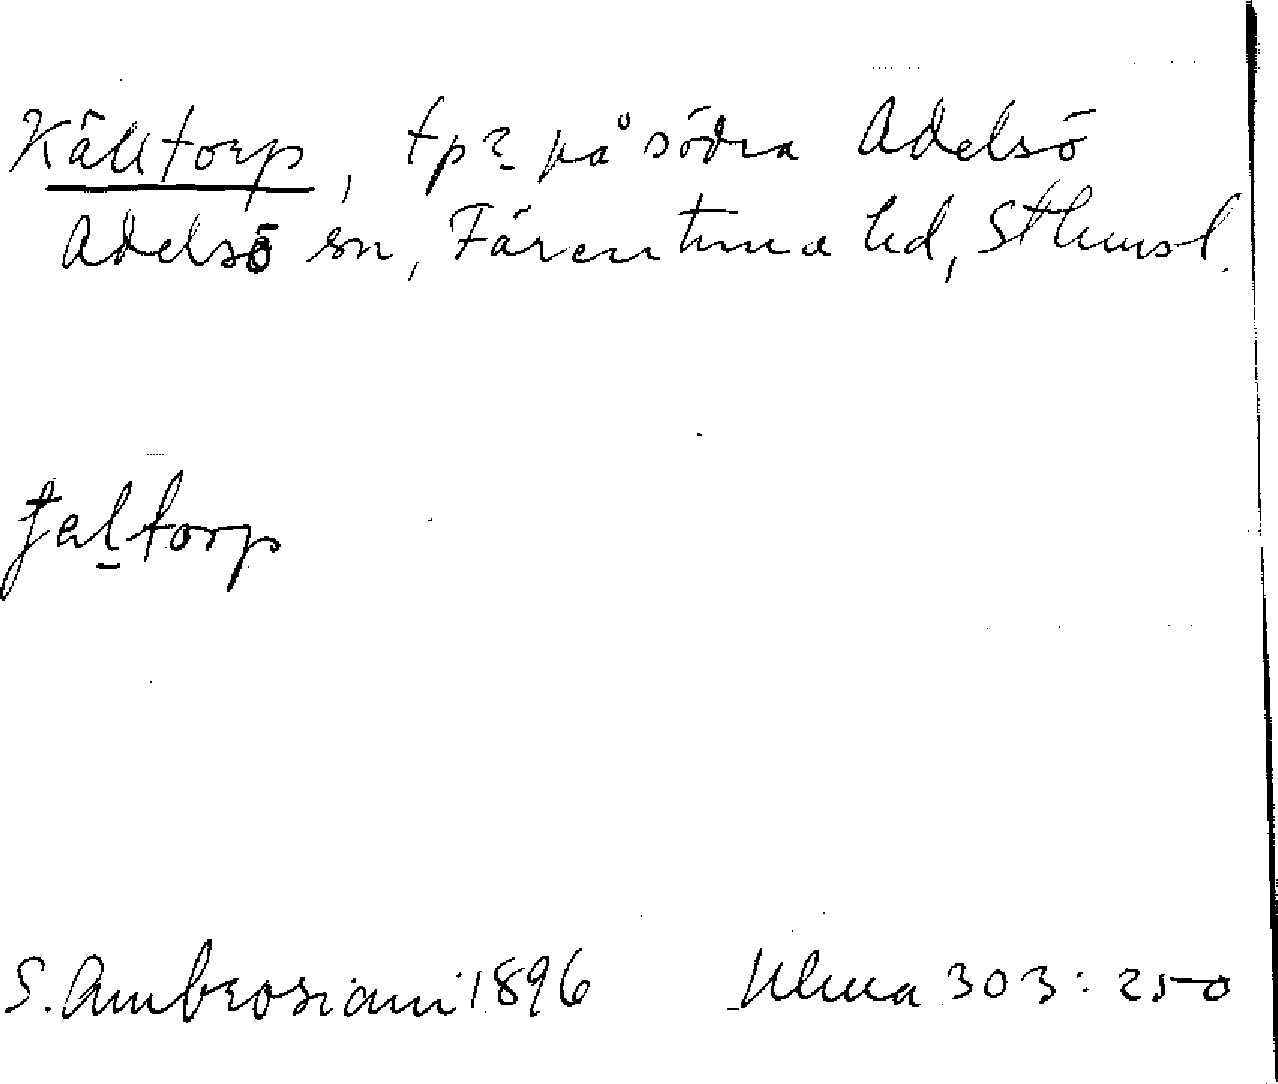 Källtorp, tp? på södra Adelsö
Adelsö sn, Färentuna hd, Sthmsl.
ɟaltorp
S. Ambrosiani 1896 Ulma 303:250